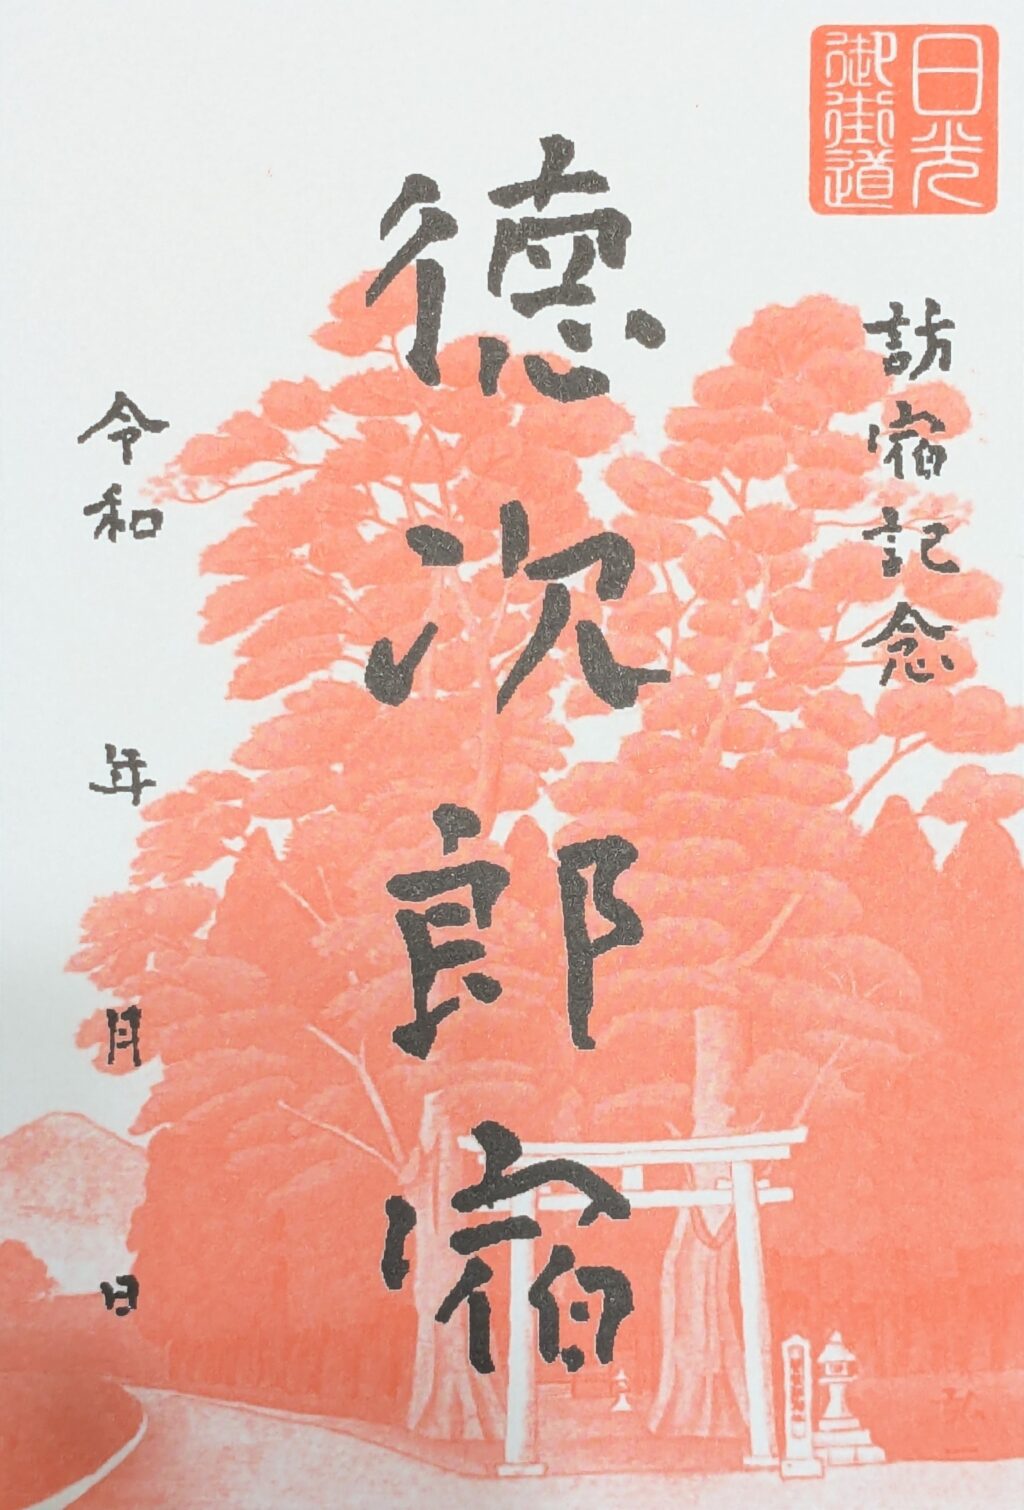 日光
御街道
訪宿記念
徳次郎宿
令和 年 月 日